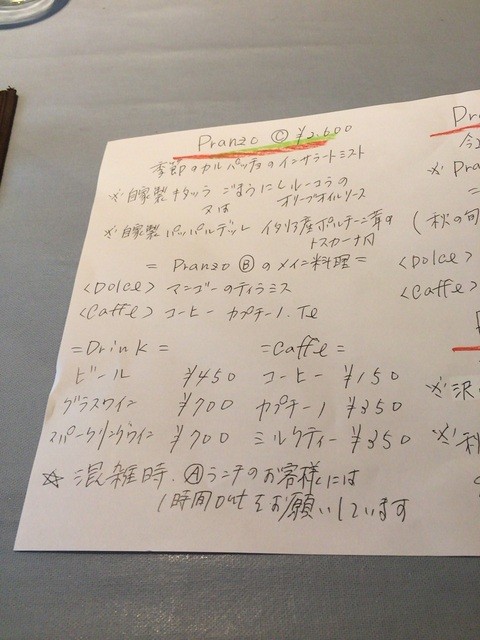 Pranzo Ⓒ ¥2,600
季節のカルパッチョのインサラートミスト
※自家製キタッラ ごまうにとルーコラの
オリーブオイルソース
又は
※自家製パッパルデッレ イタリア産ポルチーニ茸の
トスカーナ风
= Pranzo Ⓑのメイン料理 =
<Dolce> マンゴーのティラミス
<Caffe> コーヒー カプチーノ. Te
= Drink =
ビール ¥450
グラスワイン ¥700
スパークリングワイン ¥700
= Caffe =
コーヒー ¥150
カプチーノ ¥350
ミルクティー ¥350
☆ 混雑時、Ⓐランチのお客様には
1時間outをお願いしています
Pra
※ Pra
(秋の旬
<Dolce>
<Caffe>
※沢
※秋